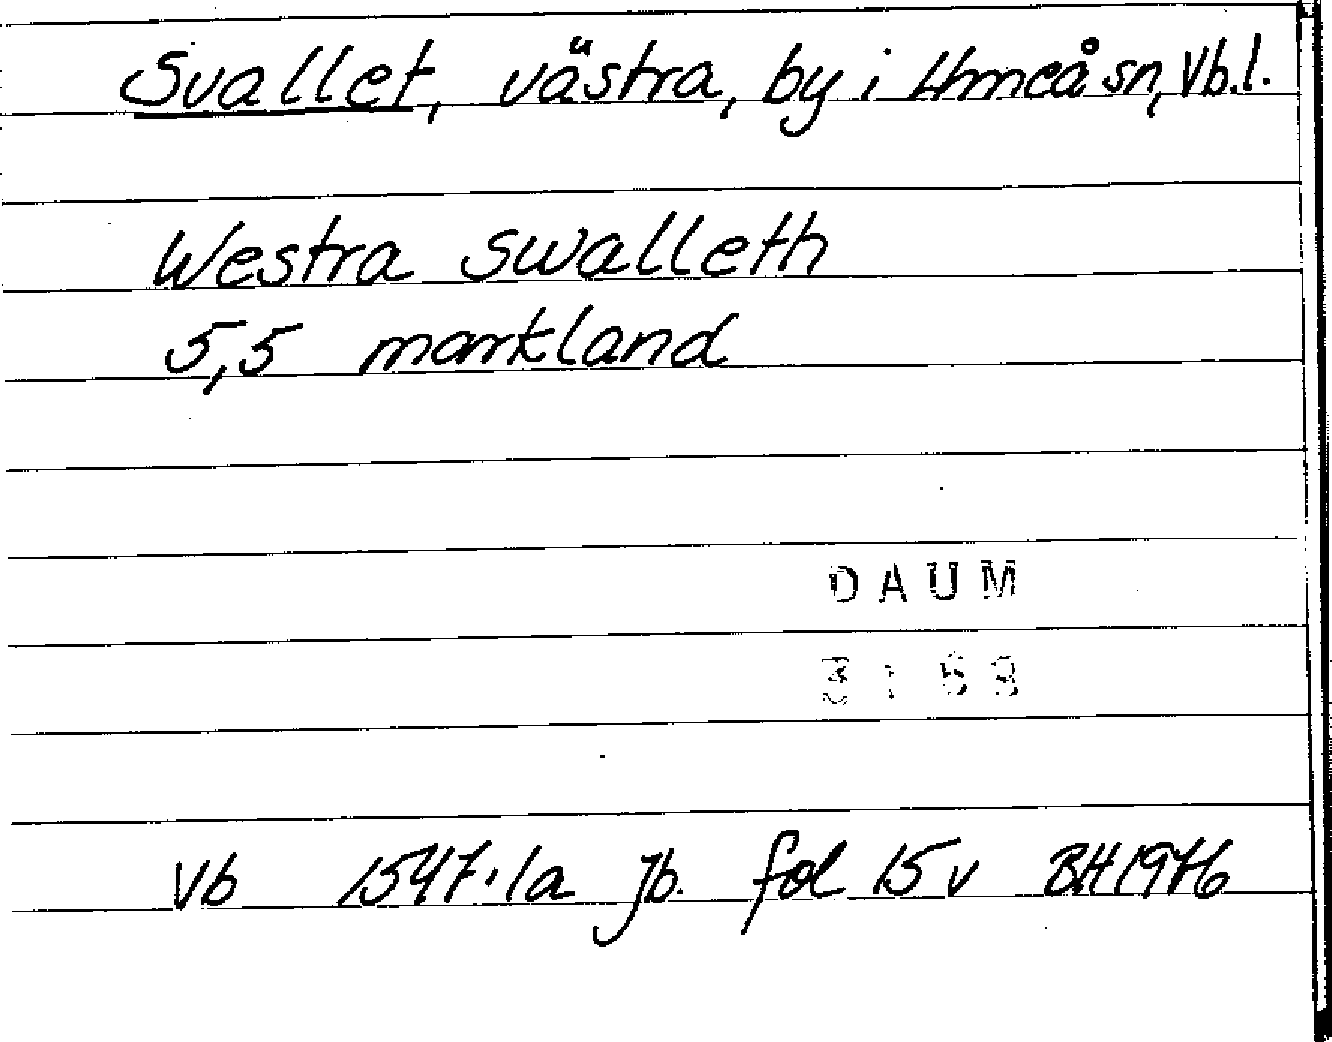 Svallet, västra, by i Umeå sn, Vb.l.
Westra swalleth
5,5 markland
DAUM
Vb 1547:1a jb. fol 15 v BH 1976